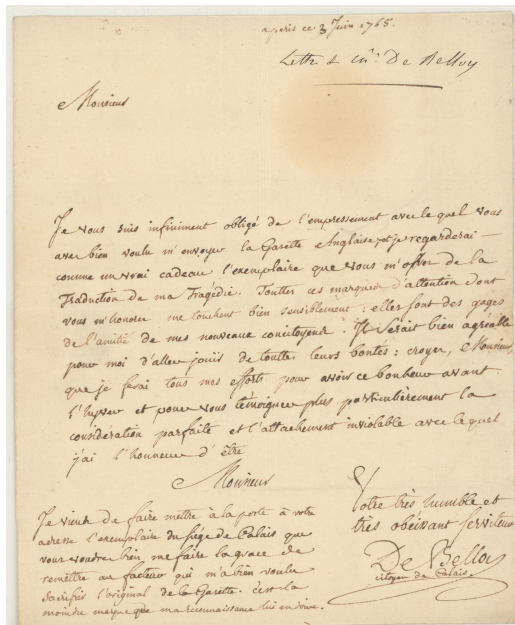 a paris ce 3 Juin 1765.
Lettre de Mr. De Belloy
Monsieur
Je vous suis infiniment obligé de l'empressement avec lequel vous
avez bien voulu m'envoyer la Gazette Anglaise, et je regarderai
comme un vrai cadeau l'exemplaire que vous m'offrez de la
Traduction de ma Tragédie. Toutes ces marques d'attention dont
vous m'honorez me touchent bien sensiblement : elles sont des gages
de l'amitié de mes nouveaux concitoyens. Il serait bien agréable
pour moi d'aller jouir de toutes leurs bontés : croyez, Monsieur,
que je ferai tous mes efforts pour avoir ce bonheur avant
l'hyver et pour vous témoigner plus particulièrement la
considération parfaite et l'attachement inviolable avec lequel
j'ai l'honneur d'être
Monsieur
Votre très humble et
très obéissant serviteur
De Belloy
citoyen de Calais.
Je viens de faire mettre à la poste à votre
adresse l'exemplaire du siége de Calais que
vous voudrez bien me faire la grace de
remettre au facteur qui m'a bien voulu
sacrifier l'original de la Gazette. c'est la
moindre marque que ma reconnaissance lui en doive.